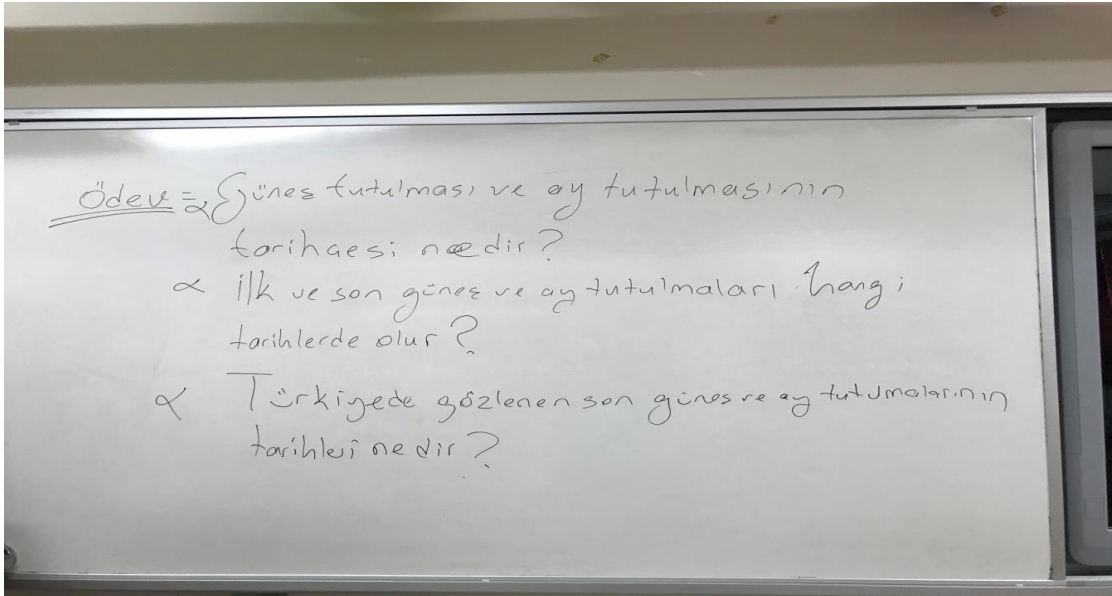 Ödev = α Güneş tutulması ve ay tutulmasının
tarihçesi nedir?
α İlk ve son güneş ve ay tutulmaları hangi
tarihlerde olur?
α Türkiyede gözlenen son güneş ve ay tutulmalarının
tarihleri nedir?